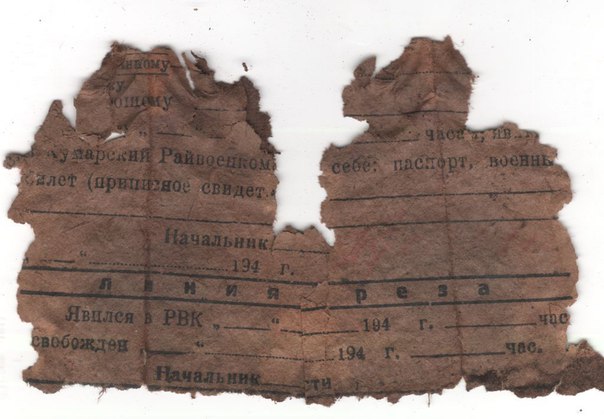 нному
ву
ющему
" час. яв
Кумарский Райвоенком себе: паспорт, военны
билет (приписное свидет.
Начальник
" 194 г.
Линия реза
Явился в РВК „ " 194 г. час
свобожден " 194 г. час.
Начальник сти